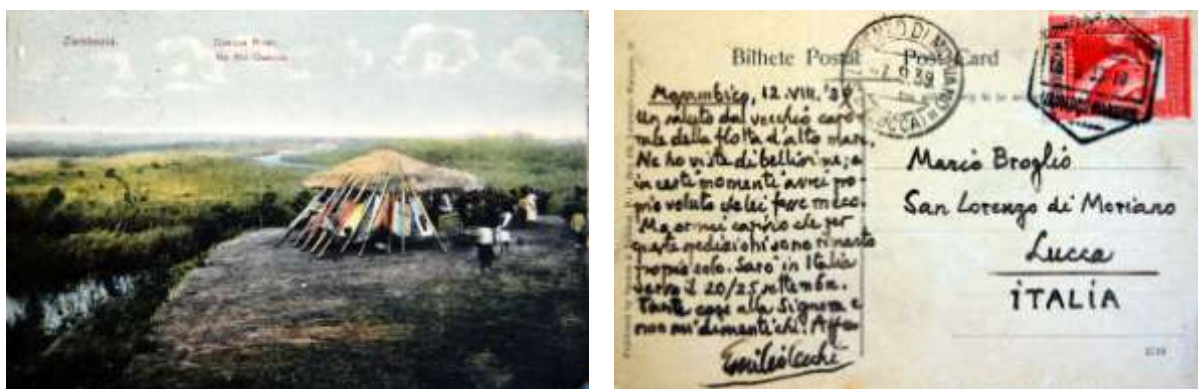 Zambezia.
Cuacua River.
No Rio Cuacua.
Bilhete Postal Post Card
Mozambico, 12.VIII.'39
Un saluto dal vecchio capo-
rale della flotta d'alto mare.
Ne ho viste di bellissime; e
in certi momenti avrei pro-
prio voluto che lei fosse meco.
Ma ormai capisco che per
queste spedizioni sono rimasto
proprio solo. Sarò in Italia
verso il 20/25 settembre.
Tante cose alla Signora e
non mi dimentichi. Aff.
Emilio Cecchi
Mario Broglio
San Lorenzo di Moriano
Lucca
ITALIA